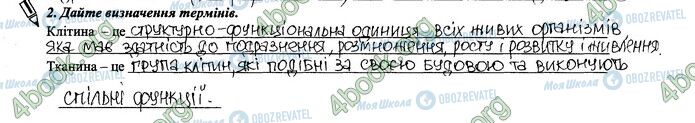 2. Дайте визначення термінів.
Клітина – це структурно-функціональна одиниця всіх живих організмів,
яка має здатність до подразнення, розмноження, росту і розвитку і живлення.
Тканина – це група клітин, які подібні за своєю будовою та виконують
спільні функції.
4book.org
Моя Школа
OBOZREVATEL